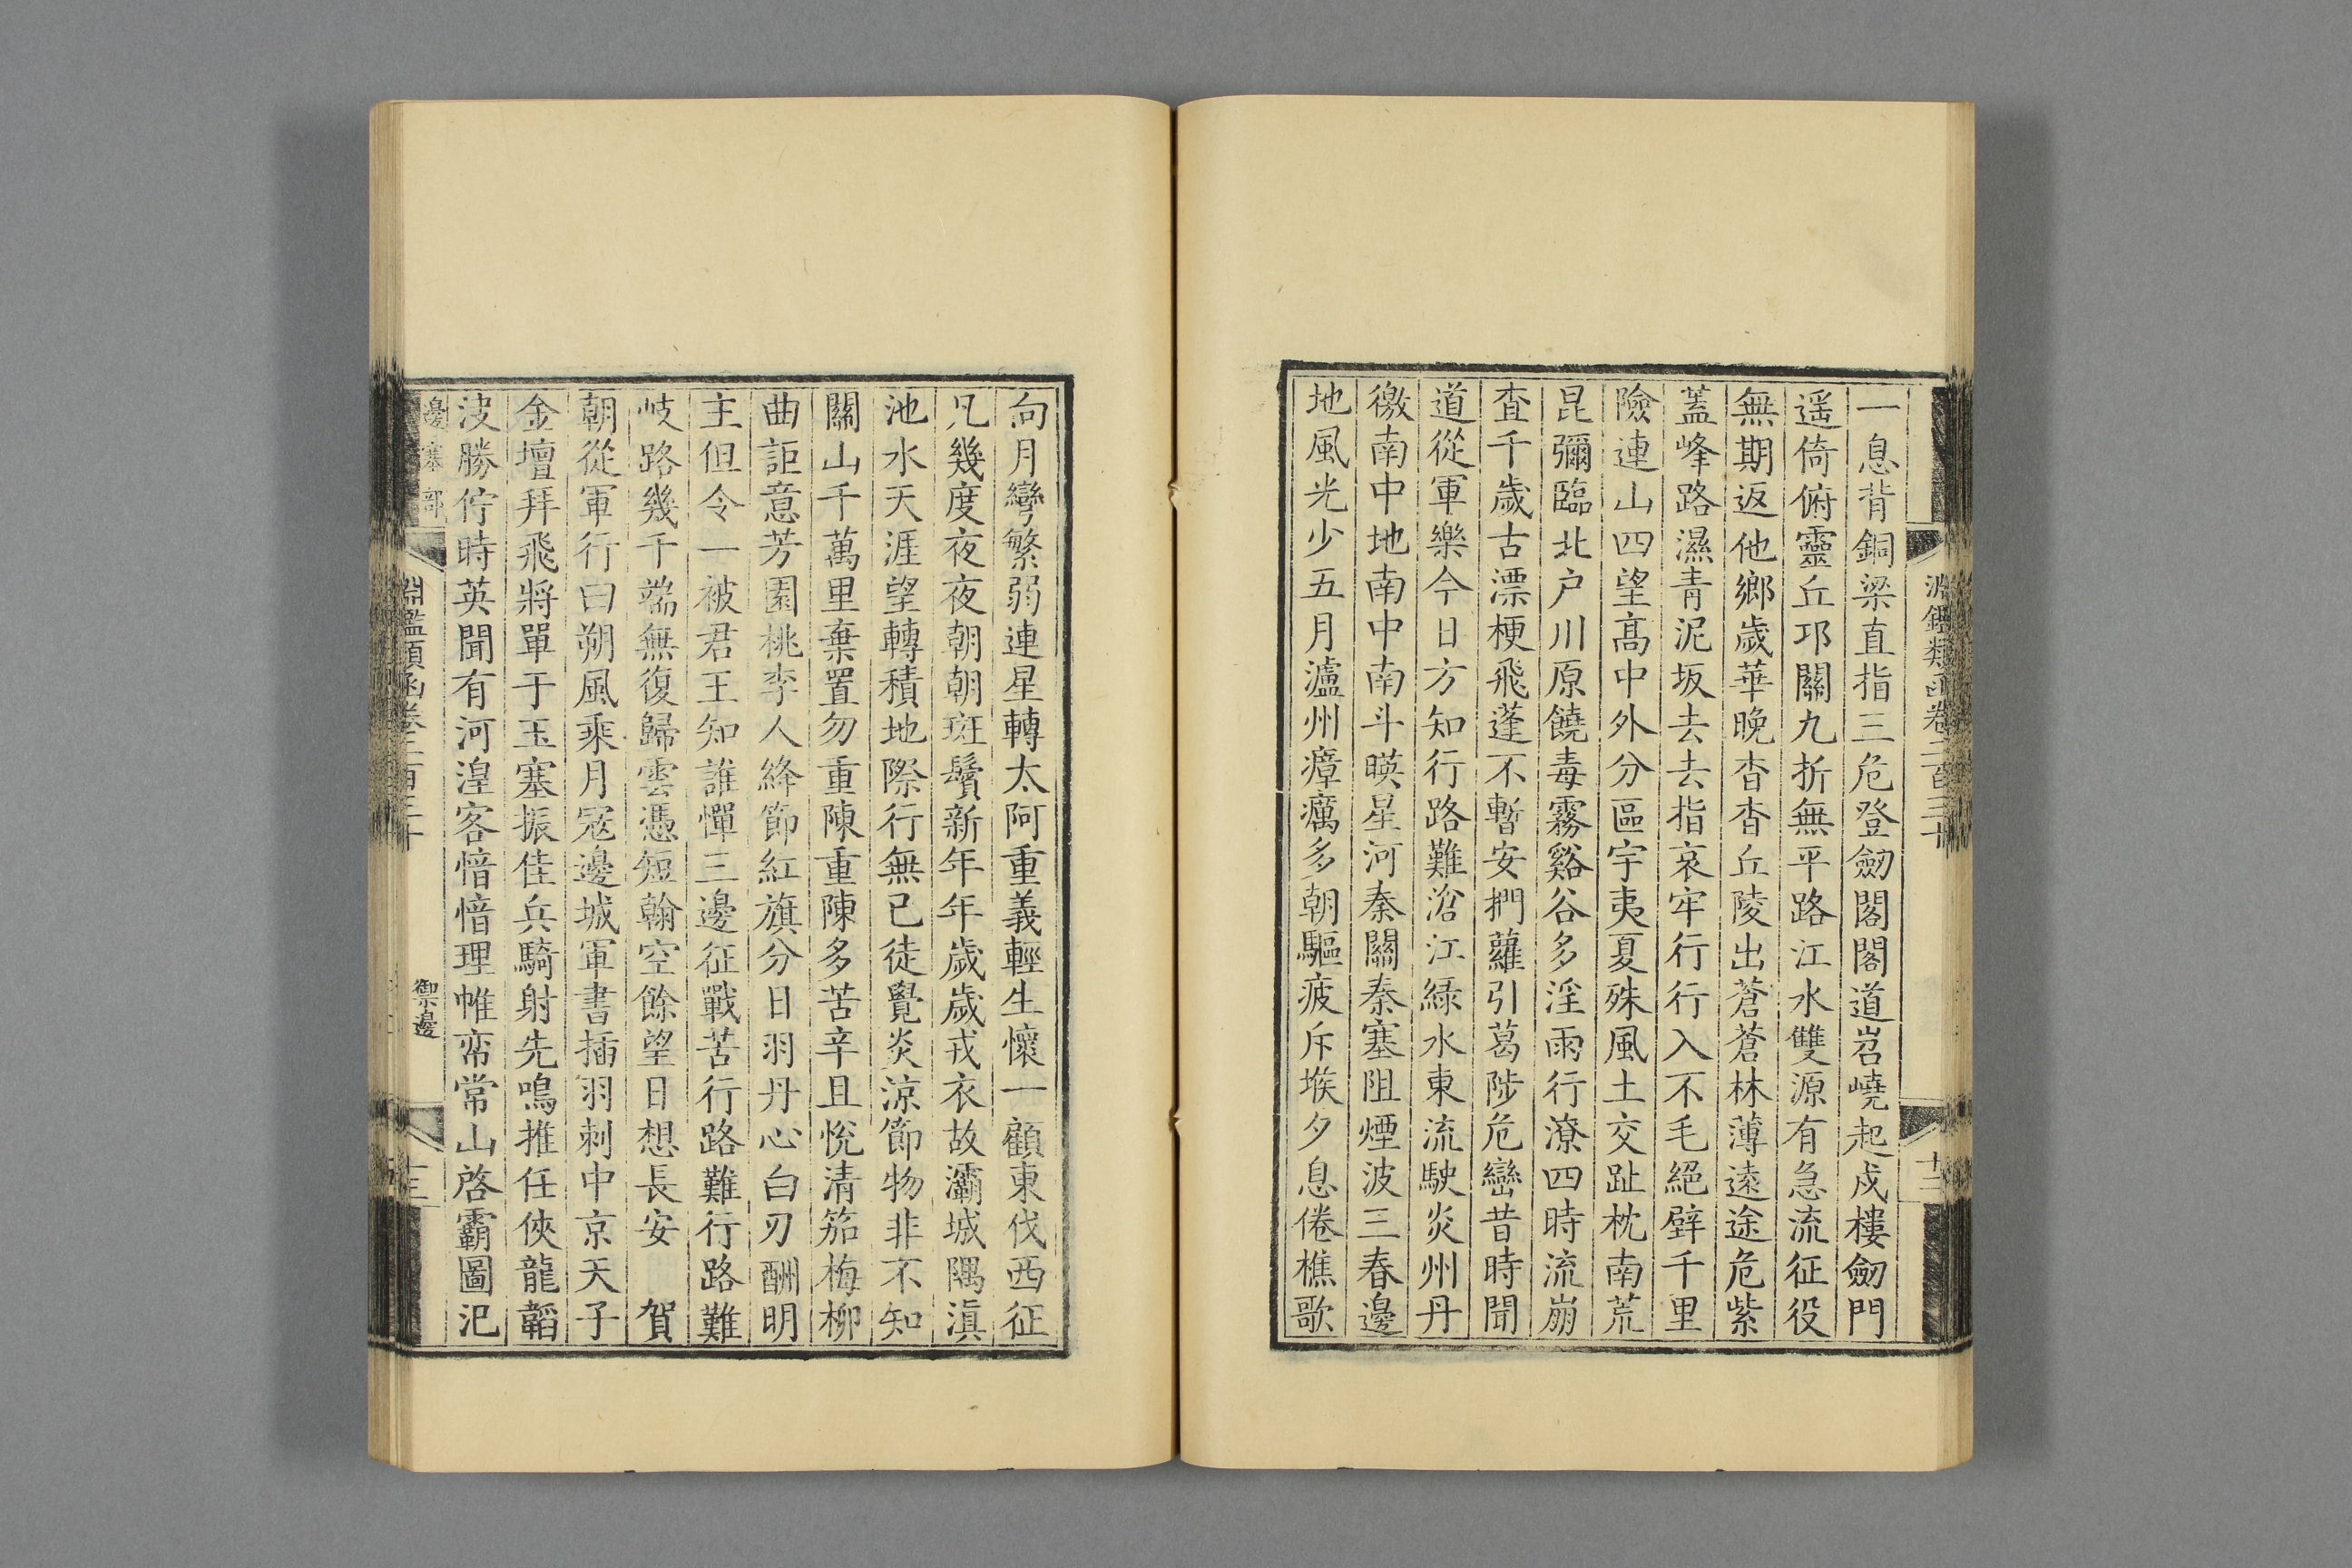 淵鑑類函卷二百三十
十二
一息背銅梁直指三危登劒閣閣道岧嶢起戍樓劒門
遥倚俯靈丘邛關九折無平路江水雙源有急流征役
無期返他鄉歲華晚杳杳丘陵出蒼蒼林薄遠途危紫
蓋峰路濕青泥坂去去指哀牢行行入不毛絕壁千里
險連山四望髙中外分區宇夷夏殊風土交趾枕南荒
昆彌臨北户川原饒毒霧谿谷多淫雨行潦四時流崩
查千歲古漂梗飛蓬不暫安捫蘿引葛陟危巒昔時聞
道從軍樂今日方知行路難滄江緑水東流駛炎州丹
徼南中地南中南斗暎星河秦關秦塞阻煙波三春邊
地風光少五月瀘州瘴癘多朝驅疲斥堠夕息倦樵歌
向月彎繁弱連星轉太阿重義輕生懷一顧東伐西征
凡幾度夜夜朝朝斑鬢新年年歲歲戎衣故灞城隅滇
池水天涯望轉積地際行無已徒覺炎涼節物非不知
關山千萬里棄置勿重陳重陳多苦辛且悅清笳梅柳
曲詎意芳園桃李人絳節紅旗分日羽丹心白刃酬明
主但令一被君王知誰憚三邊征戰苦行路難行路難
岐路幾千端無復歸雲憑短翰空餘望日想長安 賀
朝從軍行曰朔風乘月寇邊城軍書插羽刺中京天子
金壇拜飛將單于玉塞振佳兵騎射先鳴推任俠龍韜
決勝佇時英聞有河湟客愔愔理帷帟常山啓霸圖汜
邊塞部
淵鑑類函卷二百三十
禦邊
十三